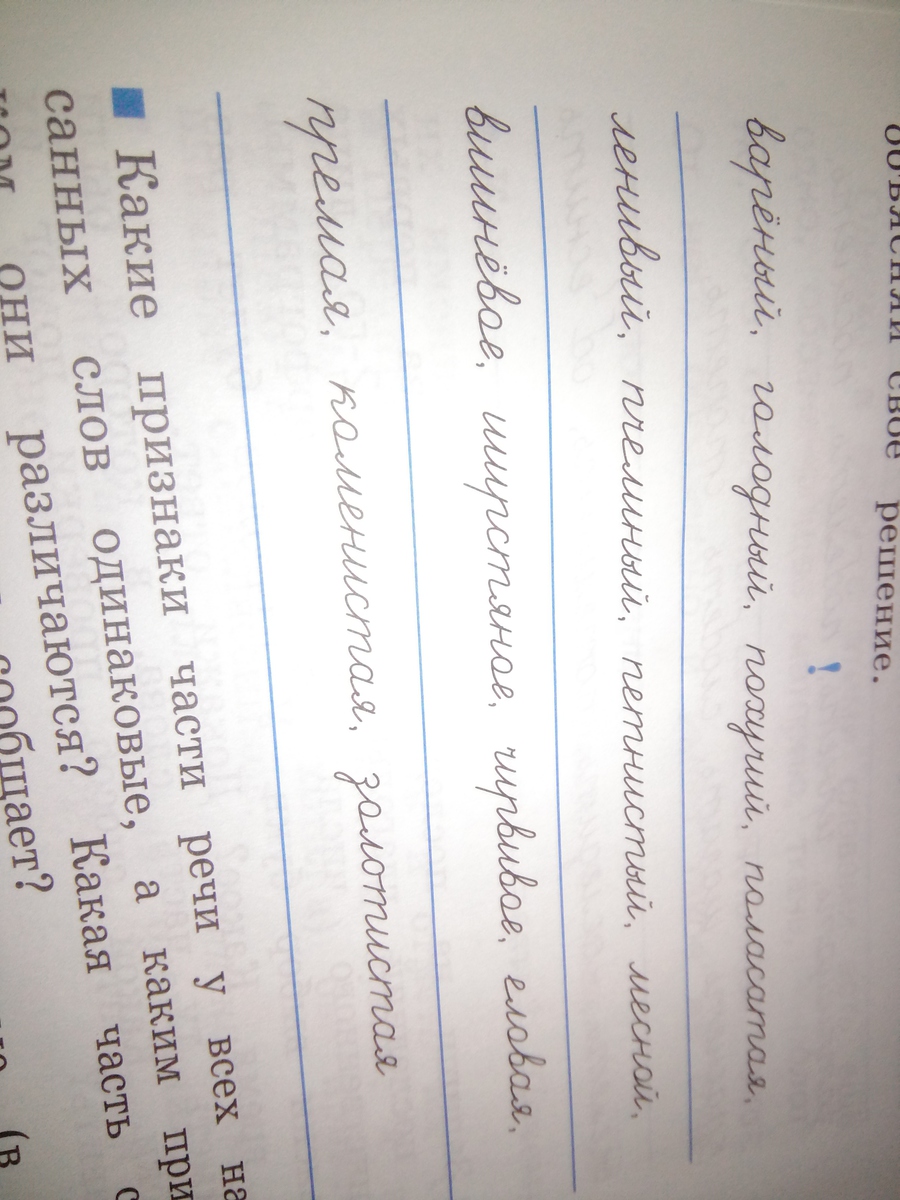 объясни своё решение.
!
варёный, голодный, похучий, поласатая,
ленивый, пчелиный, петнистый, лесной,
вишнёвое, ширстяное, чирвивое, еловая,
премая, коменистая, золотистая
Какие признаки части речи у всех на
санных слов одинаковые, а каким при
ком они различаются? Какая часть с
сообщает? (в